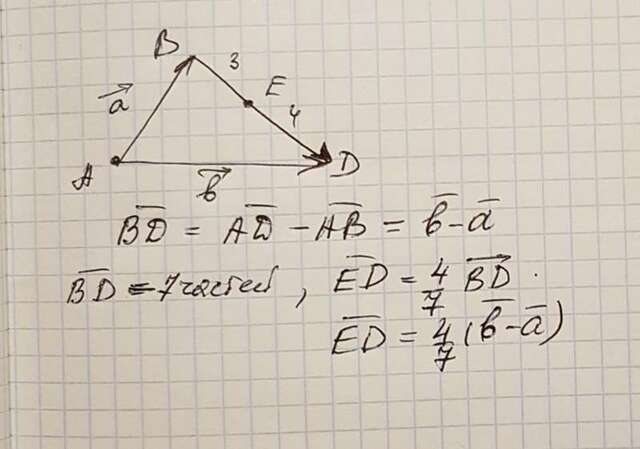 B
3
E
a⃗
4
A
b⃗
D
B̅D̅ = A̅D̅ - A̅B̅ = b̅ - a̅
B̅D̅ - 7 частей , E̅D̅ = 4/7 BD⃗ .
E̅D̅ = 4/7 (b̅ - a̅)